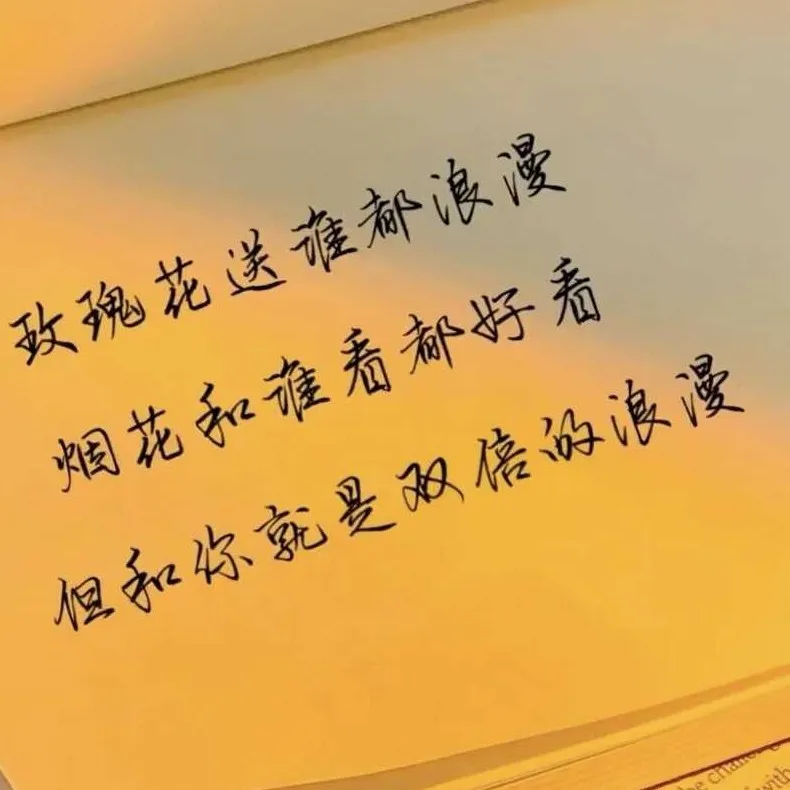 玫瑰花送谁都浪漫
烟花和谁看都好看
但和你就是双倍的浪漫